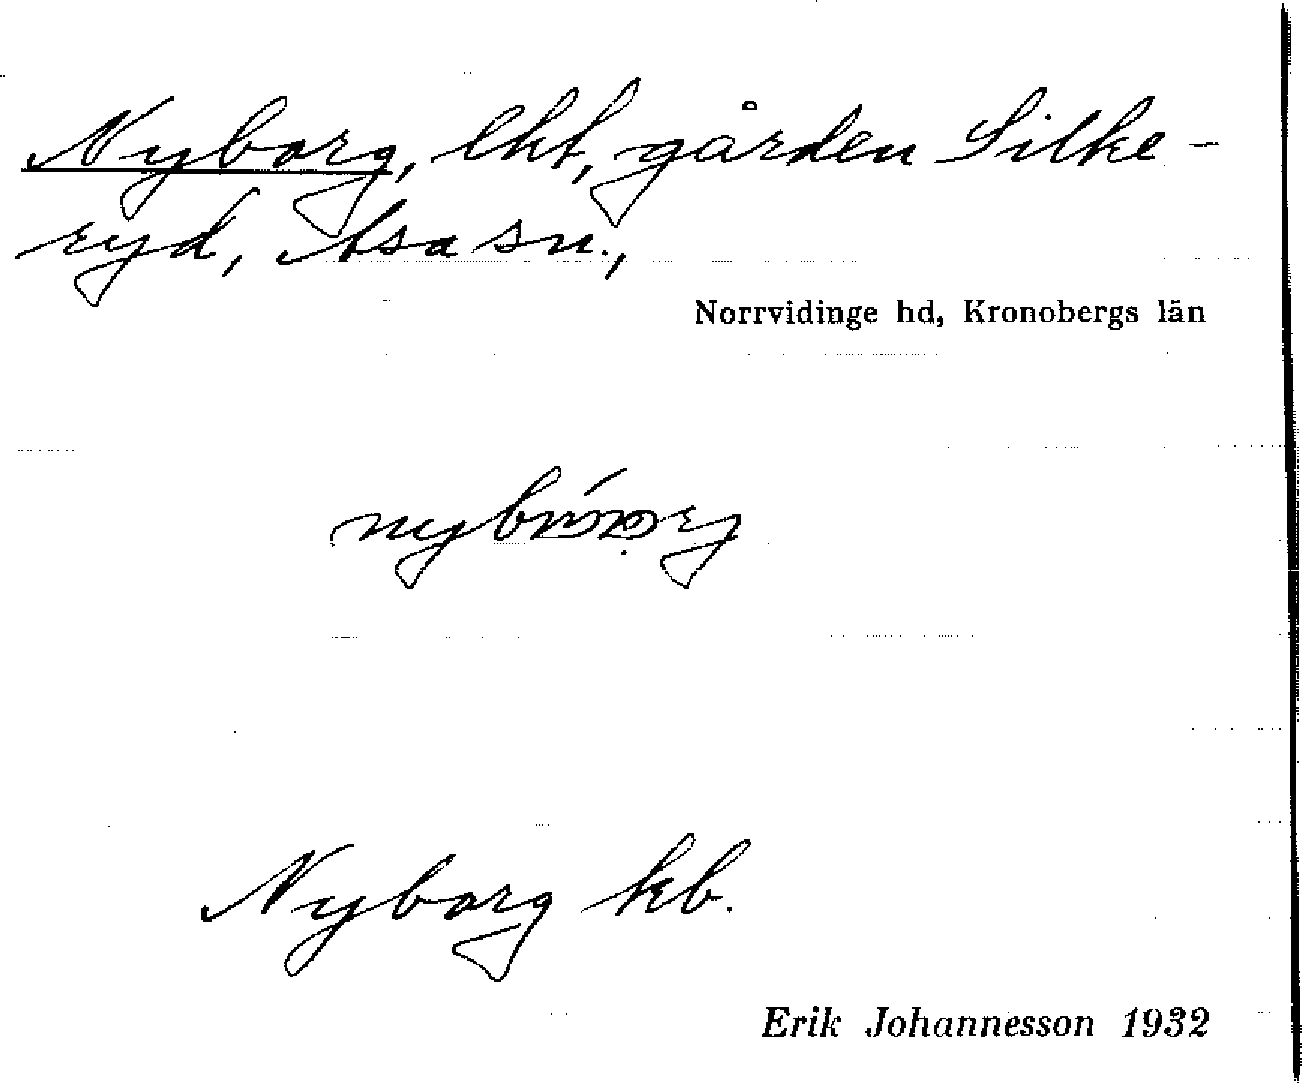 Nyborg, lht, gården Silke-
ryd, Asa sn.,
Norrvidinge hd, Kronobergs län
Nyborg kb.
Erik Johannesson 1932